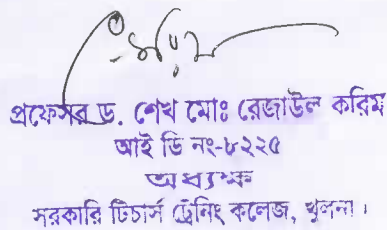 প্রফেসর ড. শেখ মোঃ রেজাউল করিম
আই ডি নং-৮২২৫
অধ্যক্ষ
সরকারি টিচার্স ট্রেনিং কলেজ, খুলনা।